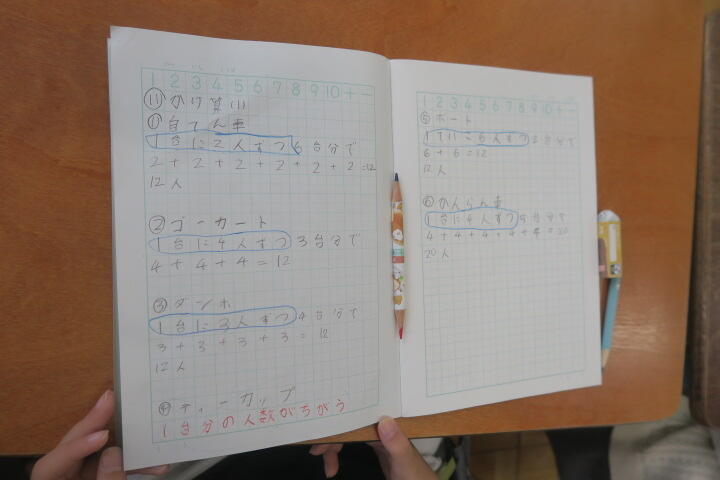 1 2 3 4 5 6 7 8 9 10 +
⑪ かけ算(1)
① 自てん車
1台に2人ずつ6台分で
2+2+2+2+2+2=12
12人
② ゴーカート
1台に4人ずつ3台分で
4+4+4=12
③ ダンボ
1台に3人ずつ4台分で
3+3+3+3=12
12人
④ ティーカップ
1台分の人数がちがう
1 2 3 4 5 6 7 8 9 10 +
⑤ ボート
6+6=12
12人
⑥ かんらん車
1台に4人ずつ5台分で
4+4+4+4+4=20
20人